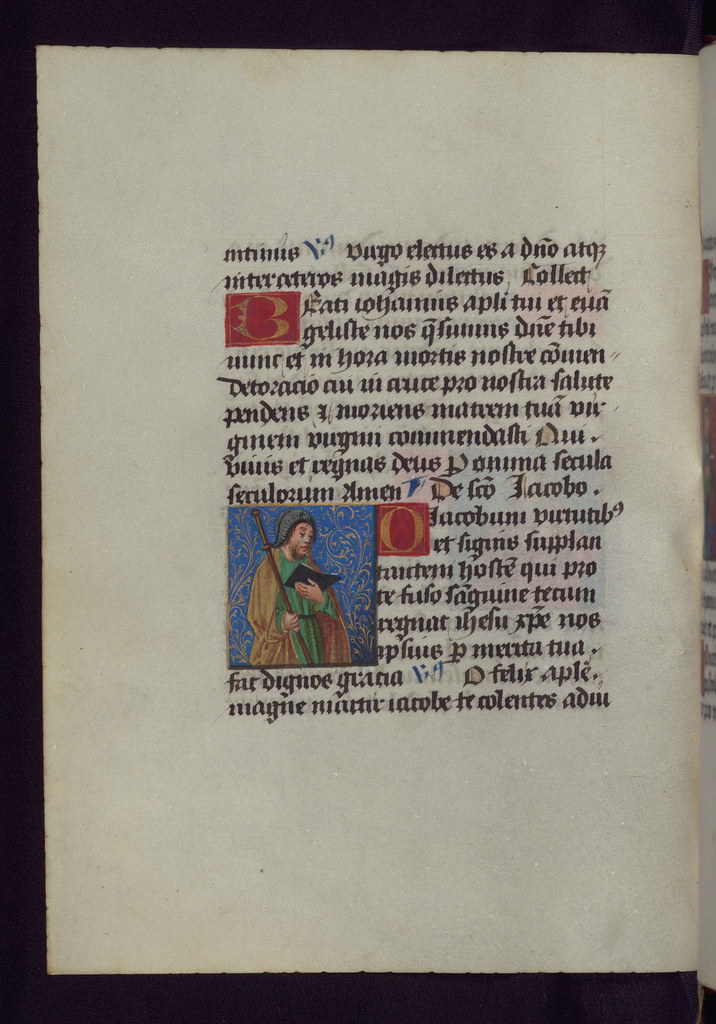 intimis V Virgo electus es a dño atqȝ
inter ceteros magis dilectus Collect
BEati iohannis apłi tui et euã
geliste nos q̃sumus dñe tibi
nunc et in hora mortis nostre cõmen
det oracio cui in cruce pro nostra salute
pendens ⁊ moriens matrem tuã vir
ginem virgini commendasti Qui
viuis et regnas deus ꝑ omnia secula
seculorum Amen De scõ Jacobo.
O Jacobum virtutibꝰ
et signis supplan
tantem hostẽ qui pro
te fuso sãguine tecum
regnat ihesu xp̃e nos
ipsius ꝑ merita tua
fac dignos gracia V O felix apłe.
magne martir iacobe te colentes adiu